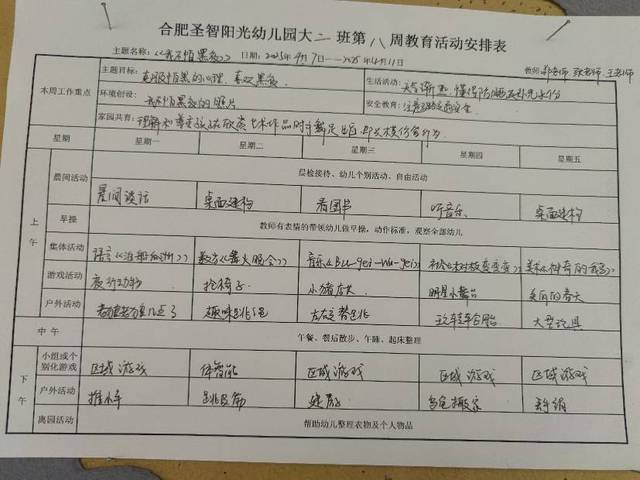 合肥圣智阳光幼儿园大二班第八周教育活动安排表
主题名称：《我不怕黑夜》 日期：2025年4月7日——2025年4月11日 教师
本周工作重点
主题目标：克服怕黑的心理，喜欢黑夜
生活活动：天气渐热，懂得防晒及补充水份
环境创设：我不怕黑夜的照片
安全教育：注意交通安全
家园共育：理解和尊重孩子在欣赏艺术作品时手舞足蹈，即兴模仿等行为
星期 星期一 星期二 星期三 星期四 星期五
上午
晨间活动 晨检接待、幼儿个别活动、自由活动
晨间谈话 桌面建构 看图书 听音乐 桌面建构
早操 教师有表情的带领幼儿做早操，动作标准，观察全部幼儿
集体活动 语言 数学《篝火晚会》 音乐
游戏活动 夜行动物 抢椅子 小猪 明星小舞台 美丽的春天
户外活动 老狼老狼几点了 趣味跳绳 大型玩具
中午 午餐、餐后散步、午睡、起床整理
下午
小组或个别化游戏 区域游戏 体智能 区域游戏 区域游戏 区域游戏
户外活动 推小车 跳皮筋
离园活动 帮助幼儿整理衣物及个人物品